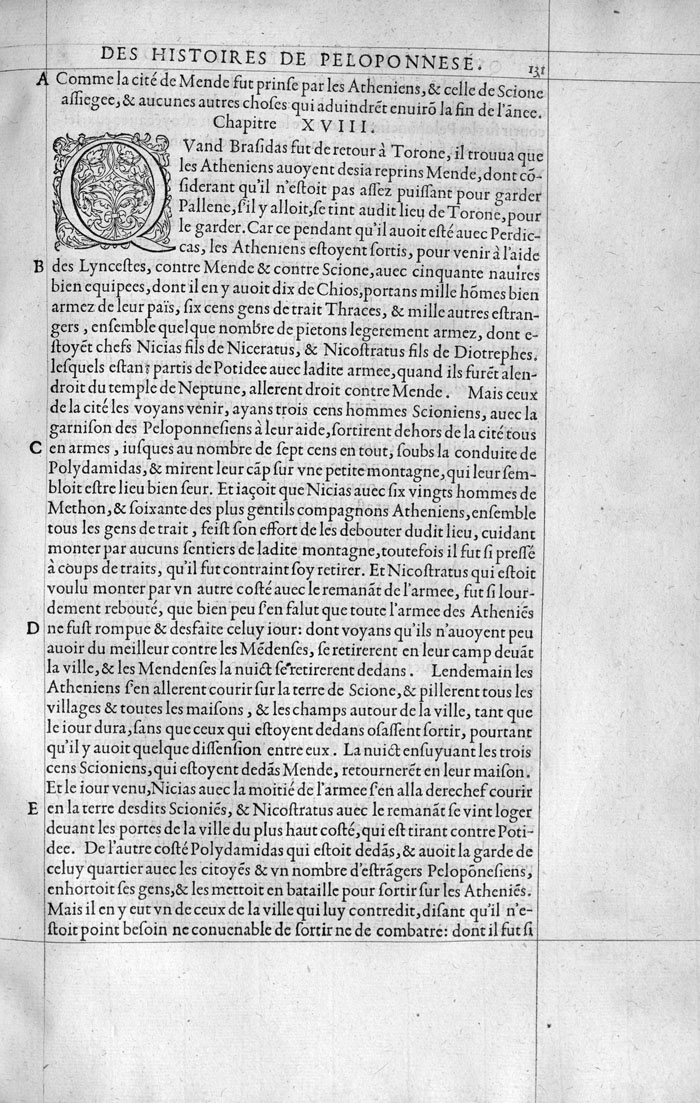 DES HISTOIRES DE PELOPONNESE.
131
A Comme la cité de Mende fut prinſe par les Atheniens, & celle de Scione
aſſiegee, & aucunes autres choſes qui aduindrēt enuirō la fin de l'ānee.
Chapitre XVIII.
QVand Braſidas fut de retour à Torone, il trouua que
les Atheniens auoyent deſia reprins Mende, dont cō-
ſiderant qu'il n'eſtoit pas aſſez puiſſant pour garder
Pallene, ſ'il y alloit, ſe tint audit lieu de Torone, pour
le garder. Car ce pendant qu'il auoit eſté auec Perdic-
cas, les Atheniens eſtoyent ſortis, pour venir à l'aide
B des Lynceſtes, contre Mende & contre Scione, auec cinquante nauires
bien equipees, dont il en y auoit dix de Chios, portans mille hōmes bien
armez de leur païs, ſix cens gens de trait Thraces, & mille autres eſtran-
gers, enſemble quelque nombre de pietons legerement armez, dont e-
ſtoyēt chefs Nicias fils de Niceratus, & Nicoſtratus fils de Diotrephes.
leſquels eſtans partis de Potidee auec ladite armee, quand ils furēt alen-
droit du temple de Neptune, allerent droit contre Mende. Mais ceux
de la cité les voyans venir, ayans trois cens hommes Scioniens, auec la
garniſon des Peloponneſiens à leur aide, ſortirent dehors de la cité tous
C en armes, iuſques au nombre de ſept cens en tout, ſoubs la conduite de
Polydamidas, & mirent leur cāp ſur vne petite montagne, qui leur ſem-
bloit eſtre lieu bien ſeur. Et iaçoit que Nicias auec ſix vingts hommes de
Methon, & ſoixante des plus gentils compagnons Atheniens, enſemble
tous les gens de trait, feiſt ſon effort de les debouter dudit lieu, cuidant
monter par aucuns ſentiers de ladite montagne, toutefois il fut ſi preſſé
à coups de traits, qu'il fut contraint ſoy retirer. Et Nicoſtratus qui eſtoit
voulu monter par vn autre coſté auec le remanāt de l'armee, fut ſi lour-
dement rebouté, que bien peu ſ'en falut que toute l'armee des Atheniēs
D ne fuſt rompue & desfaite celuy iour: dont voyans qu'ils n'auoyent peu
auoir du meilleur contre les Mēdenſes, ſe retirerent en leur camp deuāt
la ville, & les Mendenſes la nuict ſe retirerent dedans. Lendemain les
Atheniens ſ'en allerent courir ſur la terre de Scione, & pillerent tous les
villages & toutes les maiſons, & les champs autour de la ville, tant que
le iour dura, ſans que ceux qui eſtoyent dedans oſaſſent ſortir, pourtant
qu'il y auoit quelque diſſenſion entre eux. La nuict enſuyuant les trois
cens Scioniens, qui eſtoyent dedās Mende, retournerēt en leur maiſon.
Et le iour venu, Nicias auec la moitié de l'armee ſ'en alla derechef courir
E en la terre desdits Scioniēs, & Nicoſtratus auec le remanāt ſe vint loger
deuant les portes de la ville du plus haut coſté, qui eſt tirant contre Poti-
dee. De l'autre coſté Polydamidas qui eſtoit dedās, & auoit la garde de
celuy quartier auec les citoyēs & vn nombre d'eſtrāgers Pelopōneſiens,
enhortoit ſes gens, & les mettoit en bataille pour ſortir ſur les Atheniēs.
Mais il en y eut vn de ceux de la ville qui luy contredit, diſant qu'il n'e-
ſtoit point beſoin ne conuenable de ſortir ne de combatre: dont il fut ſi